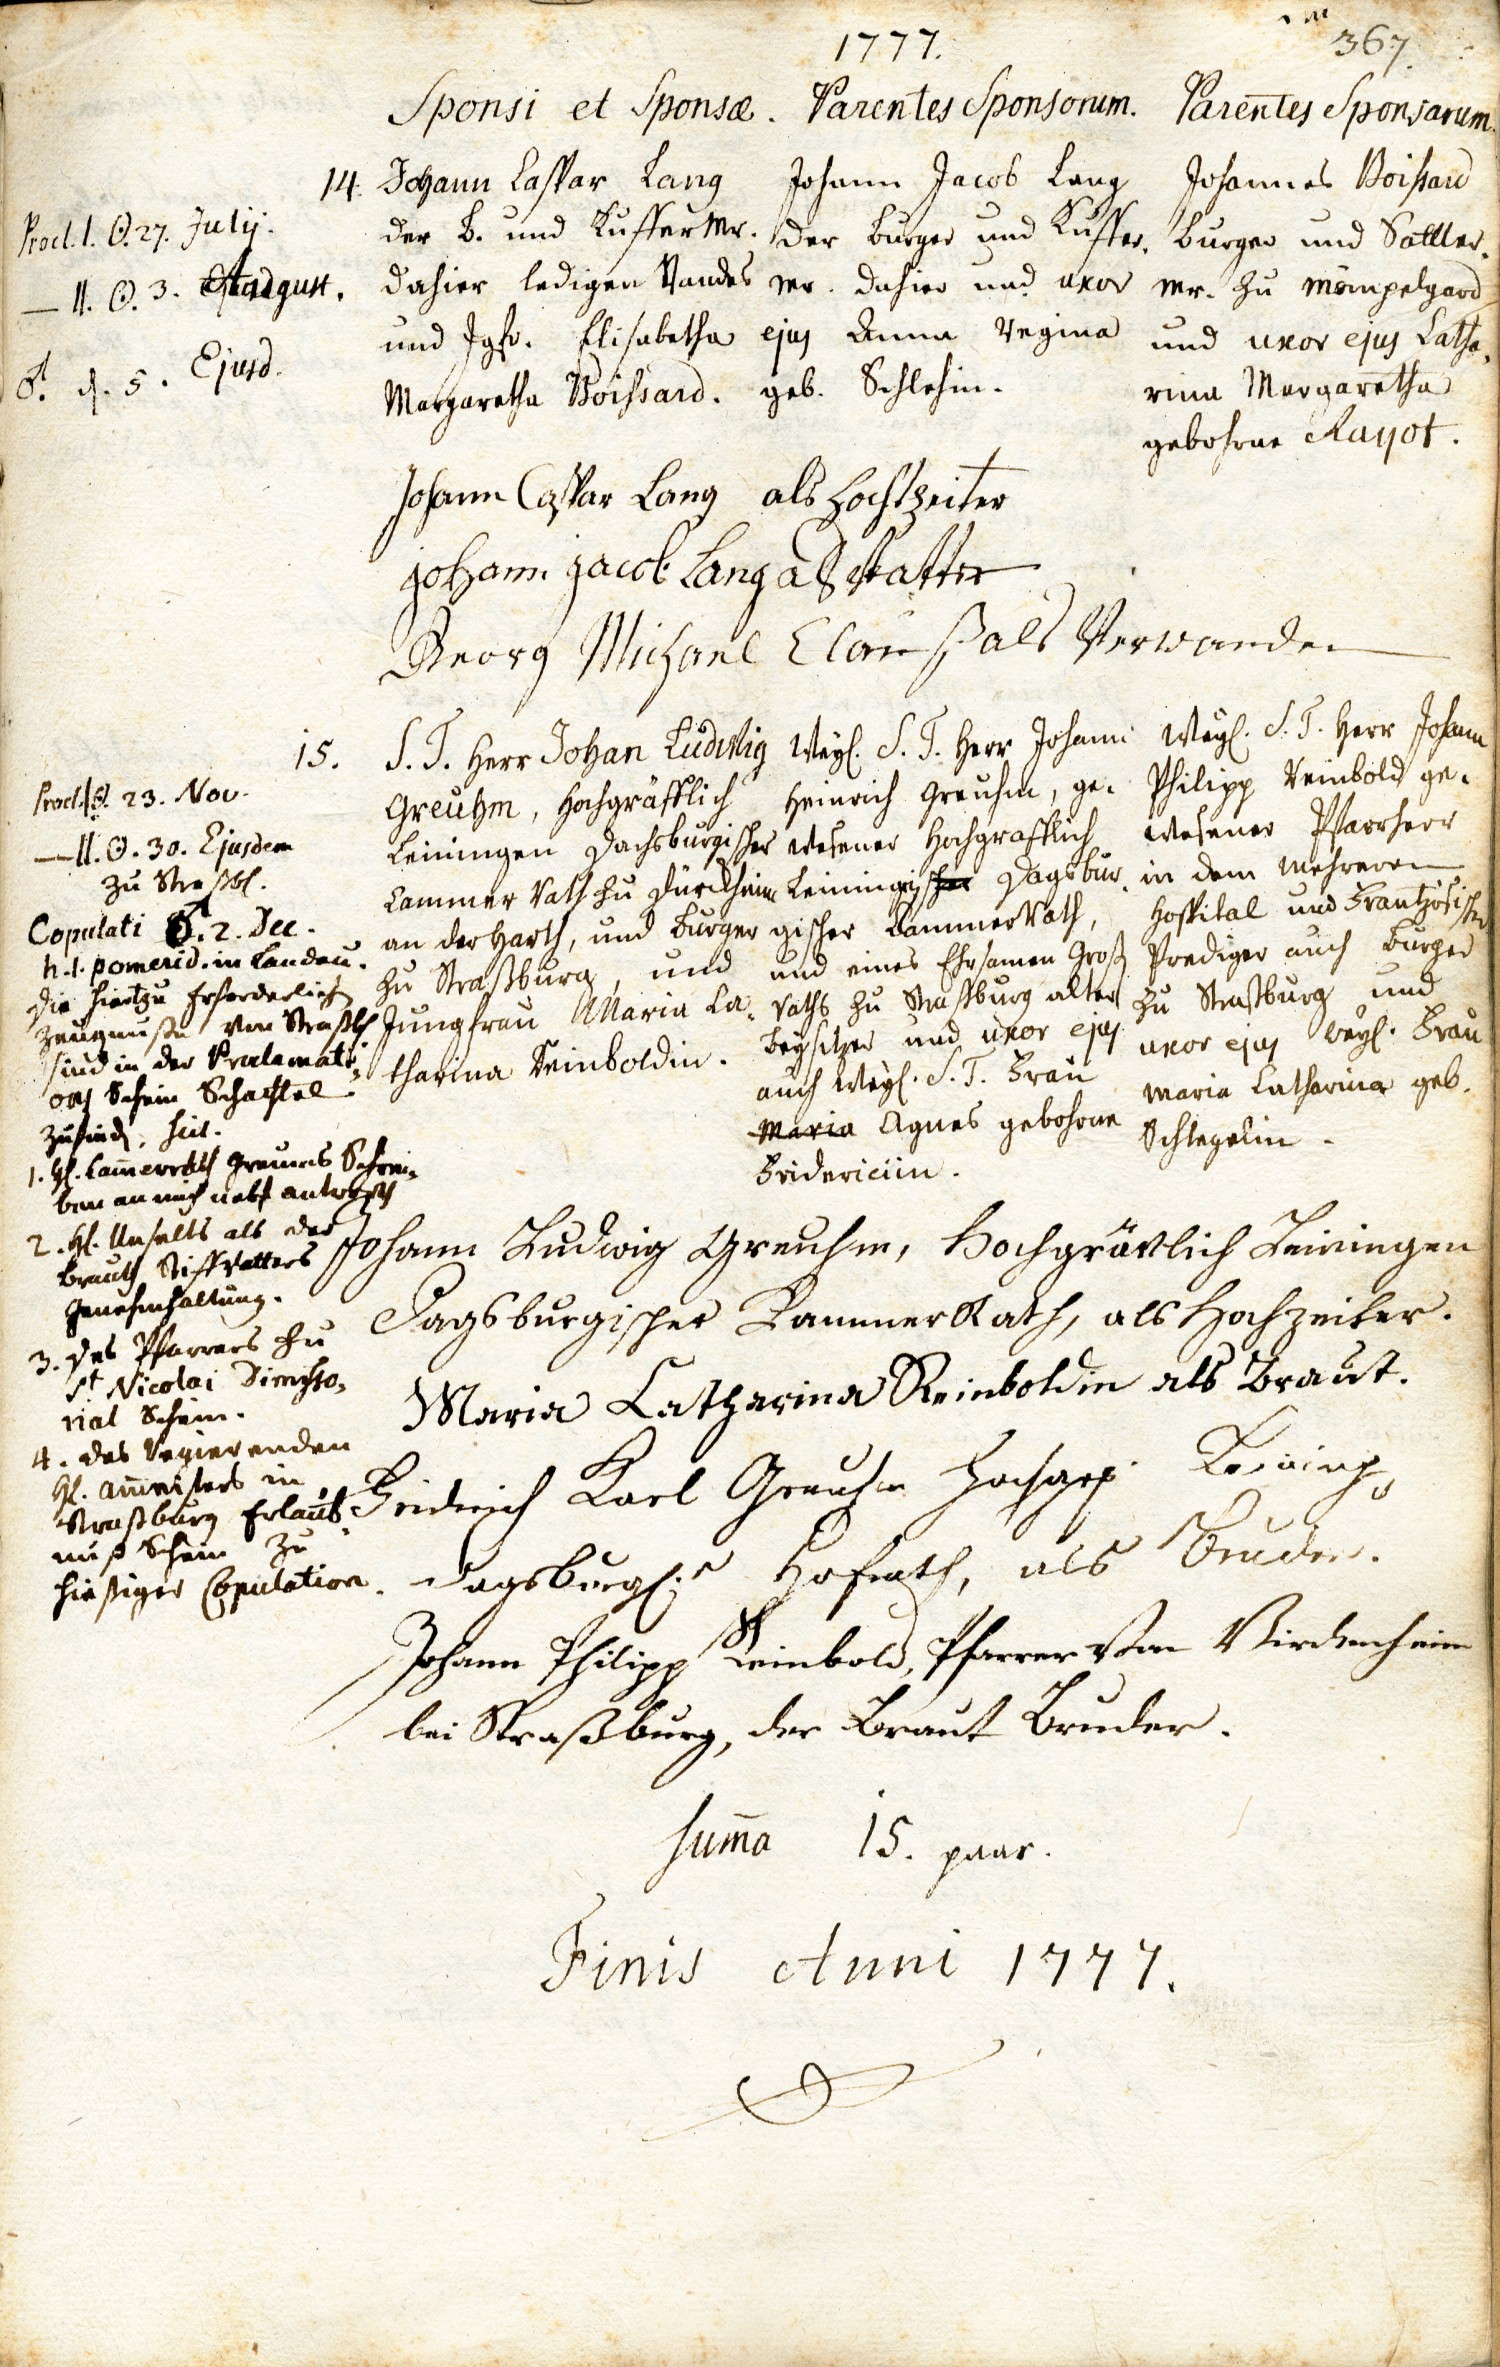 1777.
367.
Sponsi et Sponsæ. Parentes Sponsorum. Parentes Sponsarum.
Procl. I. ☉. 27. Julij.
— II. ☉. 3. August.
♂. d. 5. Ejusd.
14. Johann Caspar Lang
der B. und Kuffer Mr.
dahier ledigen Standes
und Jgfr. Elisabetha
Margaretha Boissard.
Johann Jacob Lang
der Burger und Kuffer,
Mr. dahier und uxor
ejus Anna Regina
geb. Schlehin.
Johannes Boissard
Burger und Sattler,
Mr. zu Mömpelgard
und uxor ejus Catha,
rina Margaretha
gebohrne Rayot.
Johann Caspar Lang als Hochzeiter
Johann Jacob Lang als Vatter
Georg Michael Clauß als Verwander
Procl. I. ☉. 23. Nov.
— II. ☉. 30. Ejusdem
zu Straßb.
Copulati ♂. 2. Dec.
h. 1. pomerid. in Landau.
die hiertzu erforderliche
Zeugnuße von Straßb
sind in der Proclamati,
ons Schein Schachtel
zufind.
1. H. Cam̅errath Greums Schrei,
ben an mich nebst antwort
2. H. Unselts als der
Brauth Stiffvatters
Genehmhaltung.
3. des Pfarrers zu
St Nicolai Dimisso,
rial Schein.
4. des Regierenden
H. Am̅eisters in
Straßburg Erlaub,
nuß Schein zu
hießiger Copulation.
15. S. T. Herr Johan Ludwig
Greuhm, Hochgräfflich
Leiningen Dachsburgischer
Cammer Rath zu Dürckheim
an der Harth, und Burger
zu Straßburg, und
Jungfrau Maria Ca,
tharina Reinboldin.
Weyl. S. T. Herr Johann
Heinrich Greuhm, ge,
wesener Hochgrafflich
Leiningischer Dagsbur,
gischer CammerRath,
und eines Ehrsamen Groß
Raths zu Straßburg alter
Beysitzer und uxor ejus
auch Weyl. S. T. Frau
Maria Agnes gebohrne
Fridericiin.
Weyl. S. T. Herr Johann
Philipp Reinbold ge,
wesener Pfarrherr
in dem mehreren
Hospital und Frantzösischer
Prediger auch Burger
zu Straßburg und
uxor ejus Weyl. Frau
Maria Catharina geb.
Schlegelin.
Johann Ludwig Greuhm, Hochgräflich Leiningen
Dagsburgischer KammerRath, als Hochzeiter.
Maria Catharina Reinboldin als Braut.
Fridrich Karl Greuhm Hochgräfl. Leining,
Dagsburgl.r Hofrath, als Bruder.
Johann Philipp Reinbold, Pfarrer von
bei Straßburg, der Braut Bruder.
Sum̅a 15. paar.
Finis Anni 1777.